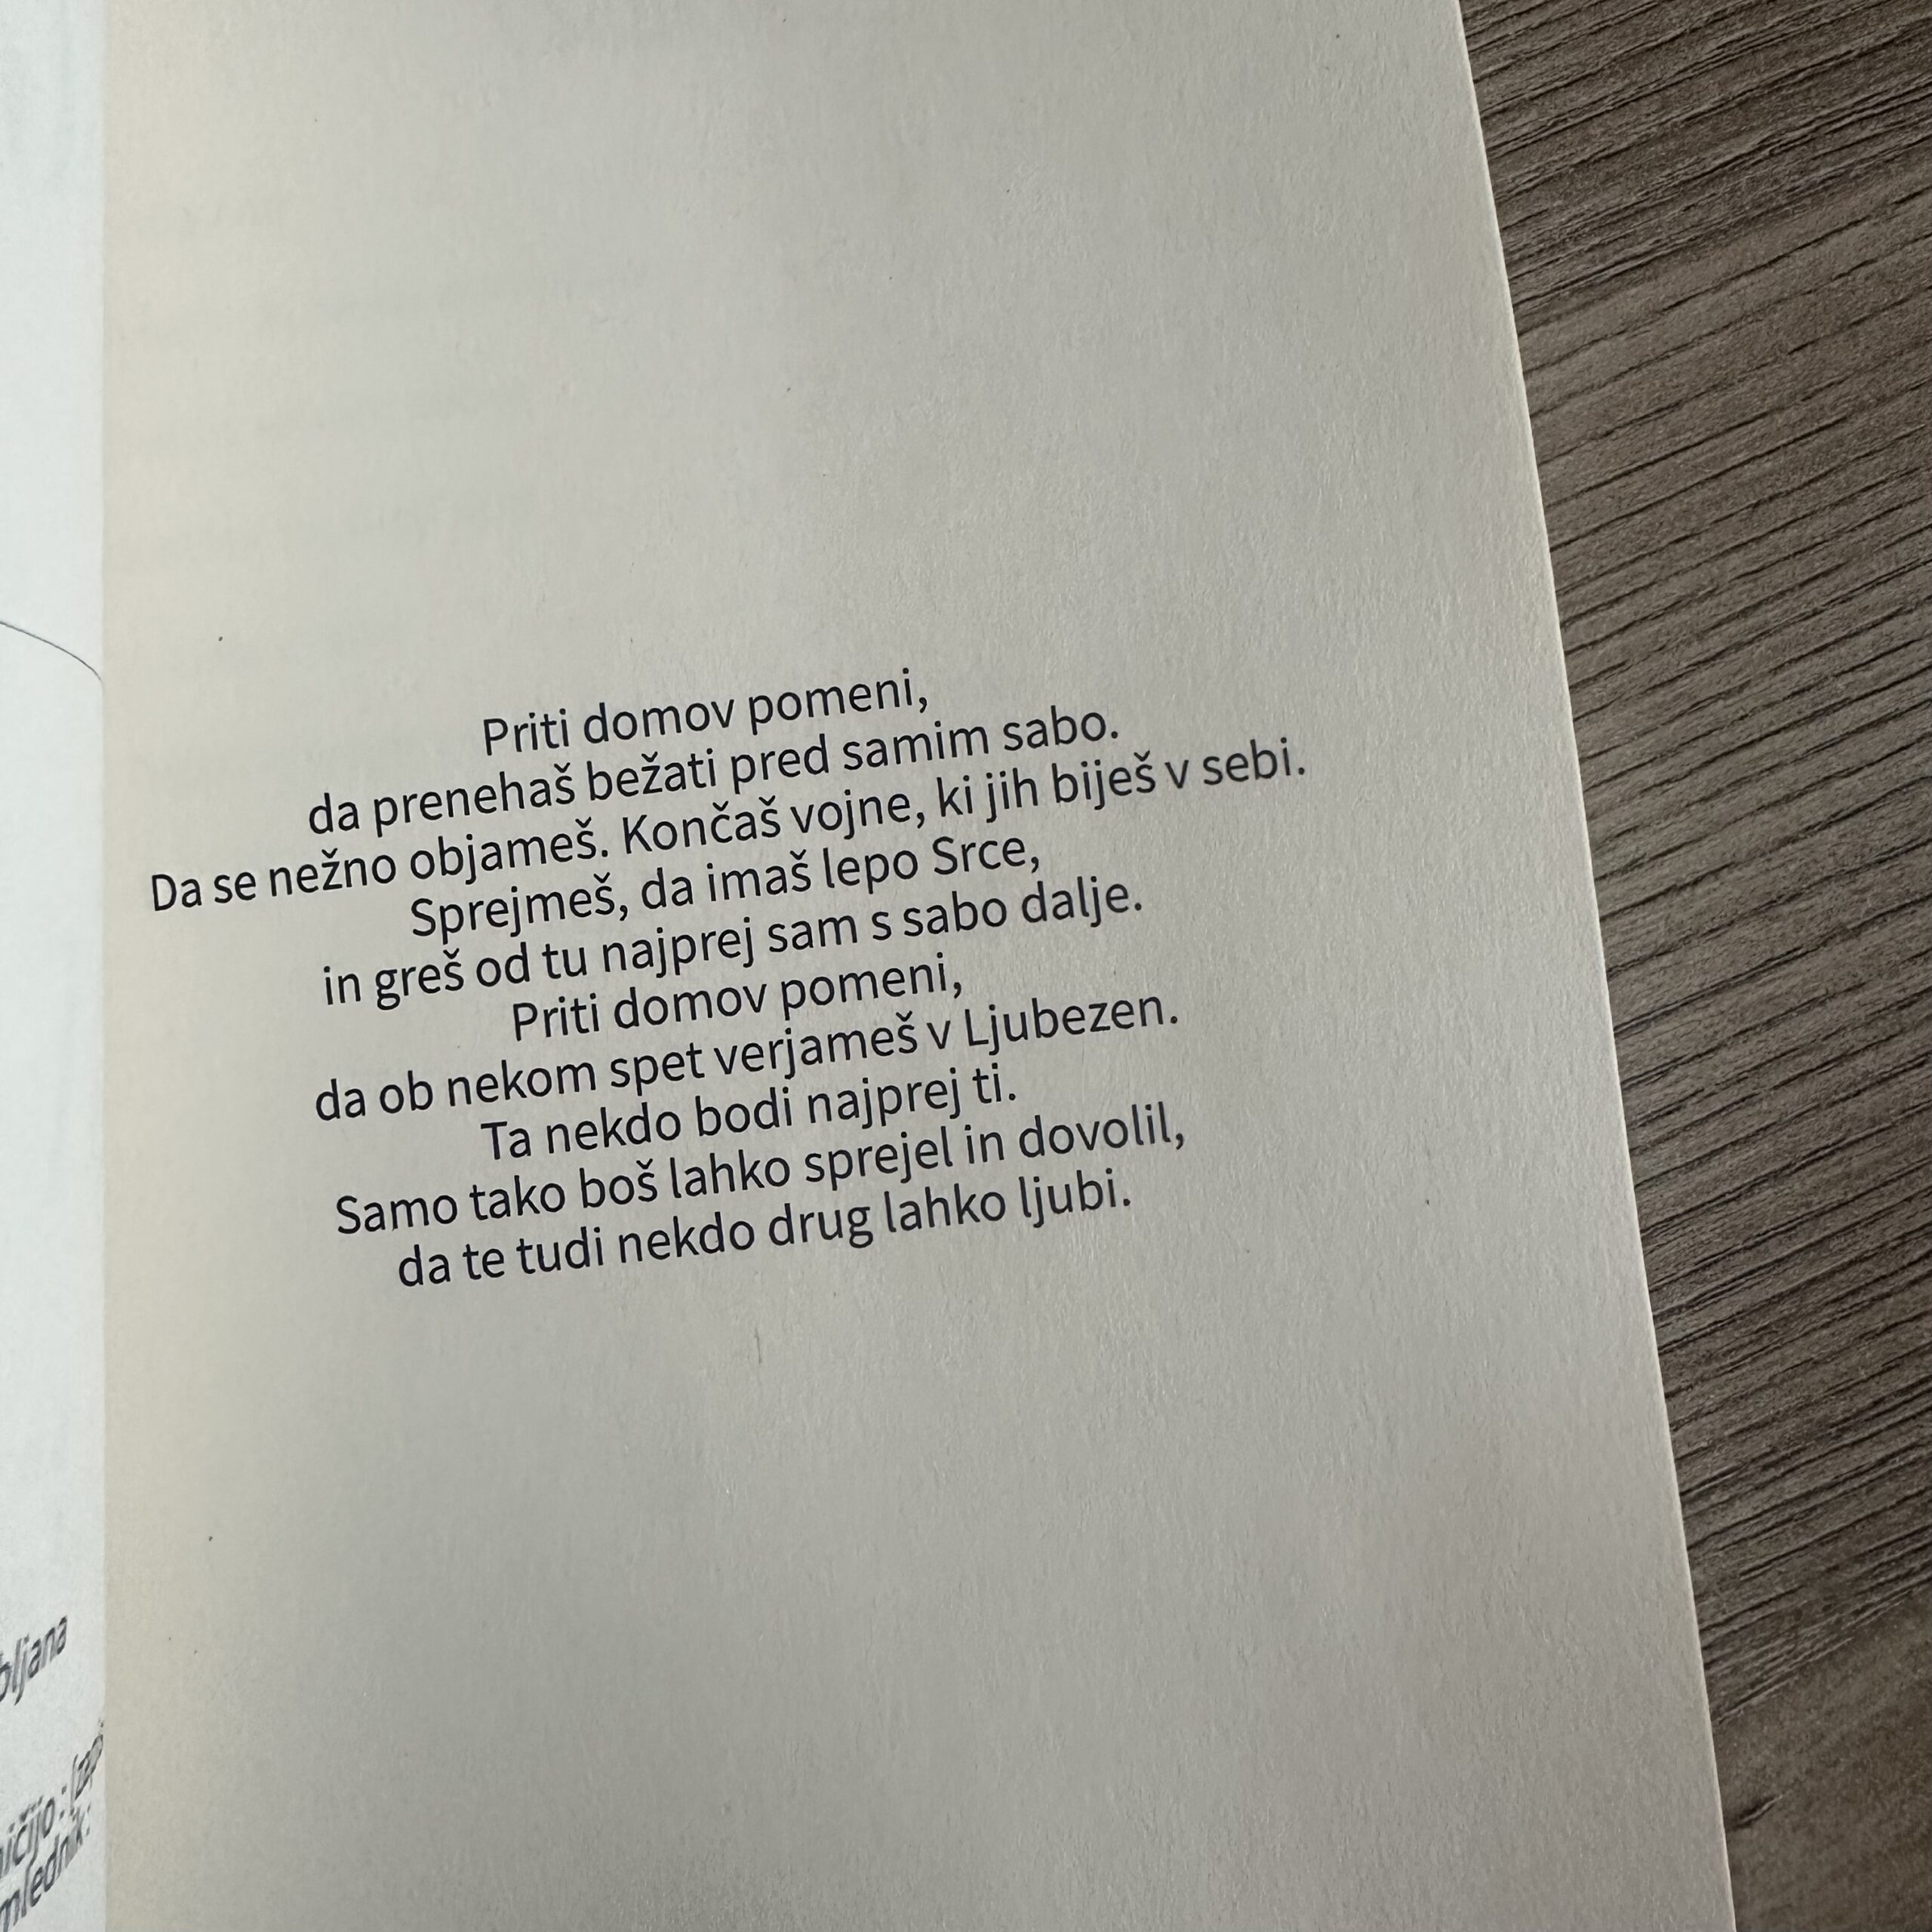 Priti domov pomeni,
da prenehaš bežati pred samim sabo.
Da se nežno objameš. Končaš vojne, ki jih biješ v sebi.
Sprejmeš, da imaš lepo Srce,
in greš od tu najprej sam s sabo dalje.
Priti domov pomeni,
da ob nekom spet verjameš v Ljubezen.
Ta nekdo bodi najprej ti.
Samo tako boš lahko sprejel in dovolil,
da te tudi nekdo drug lahko ljubi.